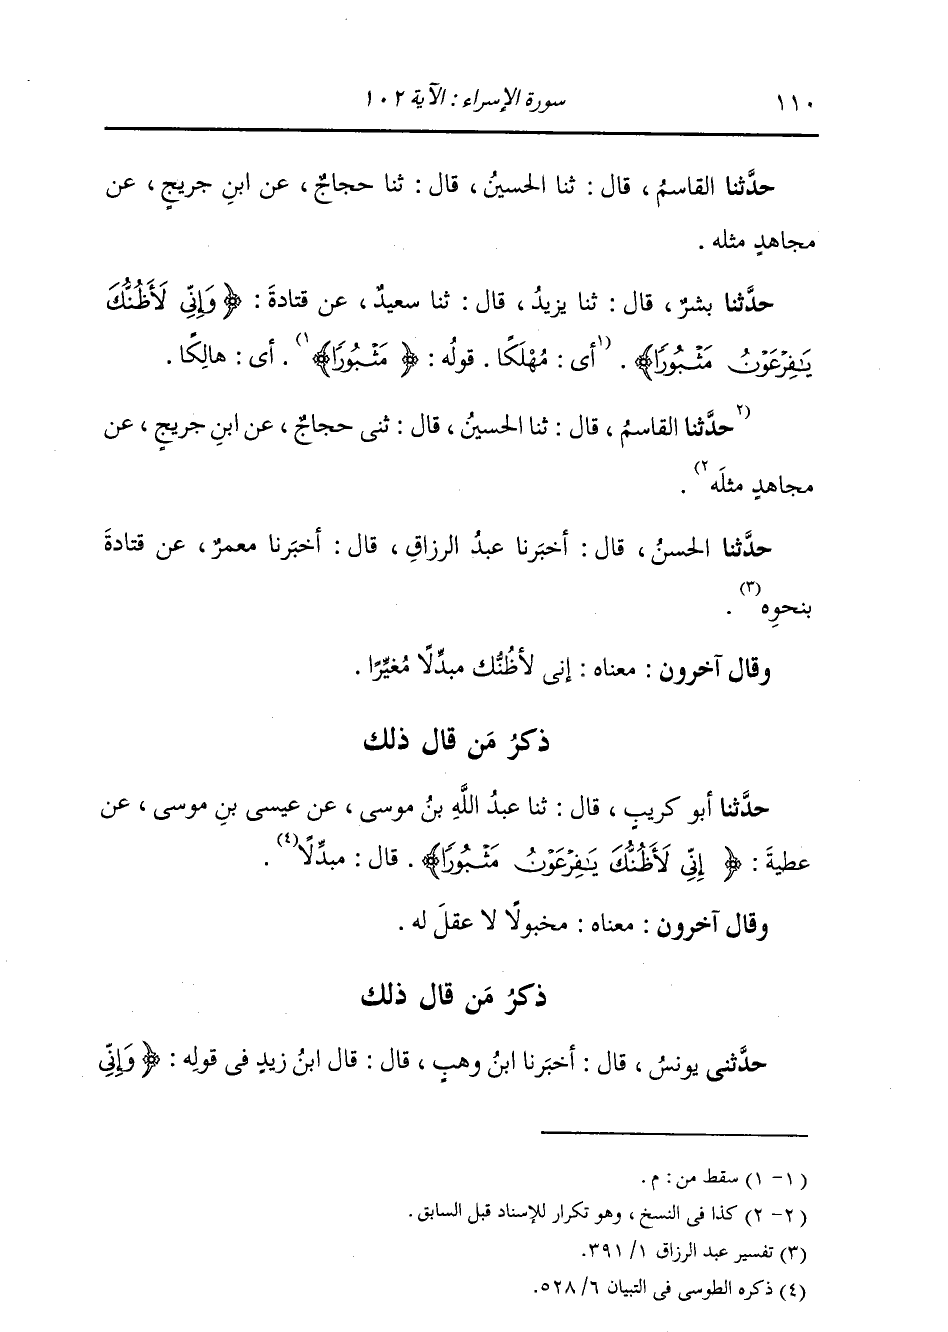 ١١٠ سورة الإسراء : الآية ١٠٢
حدَّثنا القاسمُ ، قال : ثنا الحسينُ ، قال : ثنا حجاجٌ ، عن ابنِ جريجٍ ، عن
مجاهدٍ مثله .
حدَّثنا بشرٌ ، قال : ثنا يزيدُ ، قال : ثنا سعيدٌ ، عن قتادةَ : ﴿ وَإِنِّي لَأَظُنُّكَ
يَٰفِرْعَوْنُ مَثْبُورًا﴾ . (١أى : مُهْلَكًا . قولُه : ﴿ مَثْبُورًا﴾١) . أى : هالِكًا .
(٢حدَّثنا القاسمُ ، قال : ثنا الحسينُ ، قال : ثنى حجاجٌ ، عن ابنِ جريجٍ ، عن
مجاهدٍ مثلَه٢) .
حدَّثنا الحسنُ ، قال : أخبَرنا عبدُ الرزاقِ ، قال : أخبَرنا معمرٌ ، عن قتادةَ
بنحوِه(٣) .
وقال آخرون : معناه : إنى لأظُنُّك مبدِّلًا مُغيِّرًا .
ذكرُ مَن قال ذلك
حدَّثنا أبو كريبٍ ، قال : ثنا عبدُ اللَّهِ بنُ موسى ، عن عيسى بنِ موسى ، عن
عطيةَ : ﴿ إِنِّي لَأَظُنُّكَ يَٰفِرْعَوْنُ مَثْبُورًا﴾ . قال : مبدِّلًا(٤) .
وقال آخرون : معناه : مخبولًا لا عقلَ له .
ذكرُ مَن قال ذلك
حدَّثنى يونسُ ، قال : أخبَرنا ابنُ وهبٍ ، قال : قال ابنُ زيدٍ فى قولِه : ﴿ وَإِنِّي
(١ - ١) سقط من : م .
(٢ - ٢) كذا فى النسخ ، وهو تكرار للإسناد قبل السابق .
(٣) تفسير عبد الرزاق ١/ ٣٩١.
(٤) ذكره الطوسى فى التبيان ٦/ ٥٢٨.